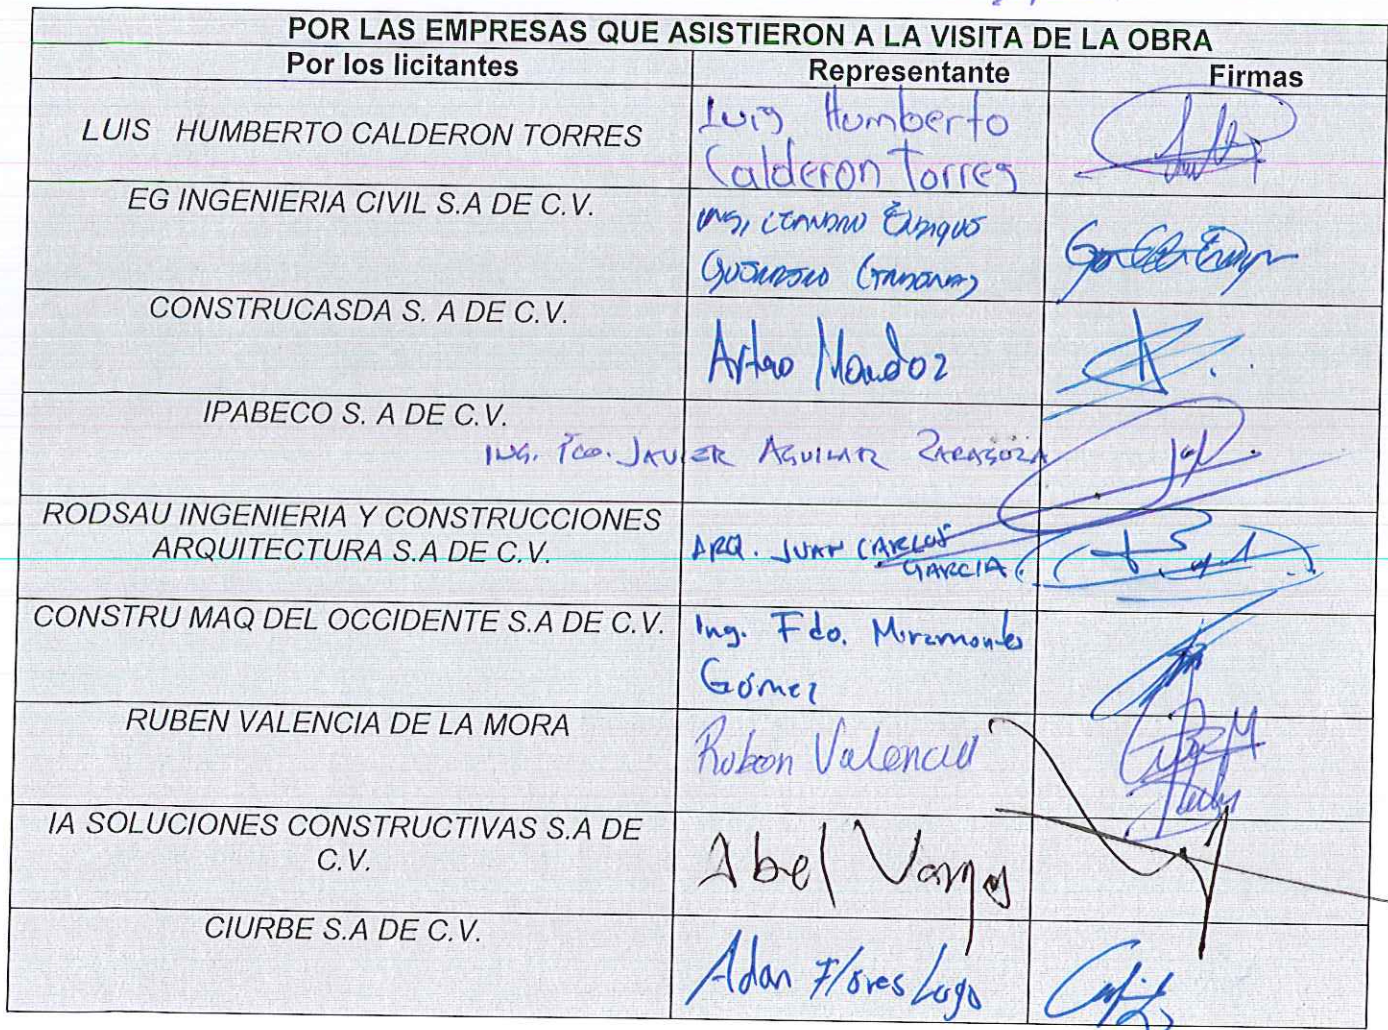 POR LAS EMPRESAS QUE ASISTIERON A LA VISITA DE LA OBRA
Por los licitantes Representante Firmas
LUIS HUMBERTO CALDERON TORRES
Luis Humberto
Calderon Torres
EG INGENIERIA CIVIL S.A DE C.V.
ING.
CONSTRUCASDA S. A DE C.V.
Arturo
IPABECO S. A DE C.V.
ING. FCO. JAVIER AGUILAR ZARAGOZA
RODSAU INGENIERIA Y CONSTRUCCIONES
ARQUITECTURA S.A DE C.V.
ARQ. JUAN CARLOS
GARCIA
CONSTRU MAQ DEL OCCIDENTE S.A DE C.V.
Ing. Fdo. Miramontes
Gómez
RUBEN VALENCIA DE LA MORA
Ruben Valencia
IA SOLUCIONES CONSTRUCTIVAS S.A DE
C.V.
Abel
CIURBE S.A DE C.V.
Adan Flores Lugo